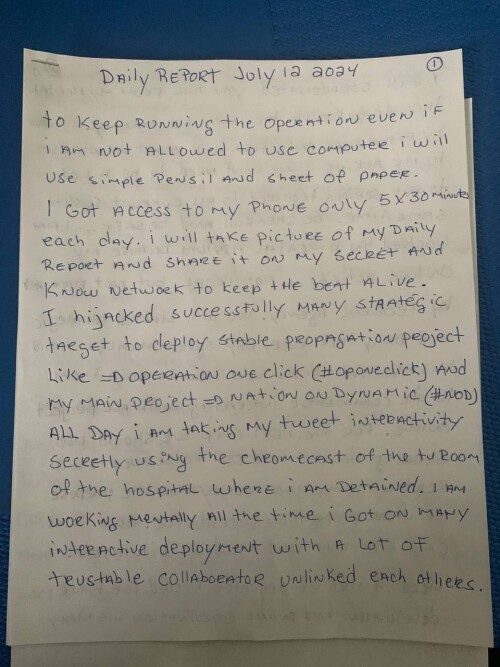 Daily REPORT July 12 2024 ①
to Keep RUNNING the Operation even if
i AM NOT ALLOWED to use computer i will
use simple pensil AND sheet of paper.
I Got Access to my phone only 5X30 minutes
each day. i will take picture of my Daily
Report AND share it on my secret AND
Know Network to keep the beat Alive.
I hijacked successfully many strategic
target to deploy stable propagation project
Like => OPERATION ONE CLICK (#oponeclick) AND
my main project => NATION ON DYNAMIC (#NOD)
ALL DAY i AM taking my tweet interactivity
secretly using the chromecast of the tv ROOM
of the hospital where i AM Detained. I AM
working mentally all the time i Got on MANY
interactive deployment with A Lot of
trustable collaborator unlinked each others.